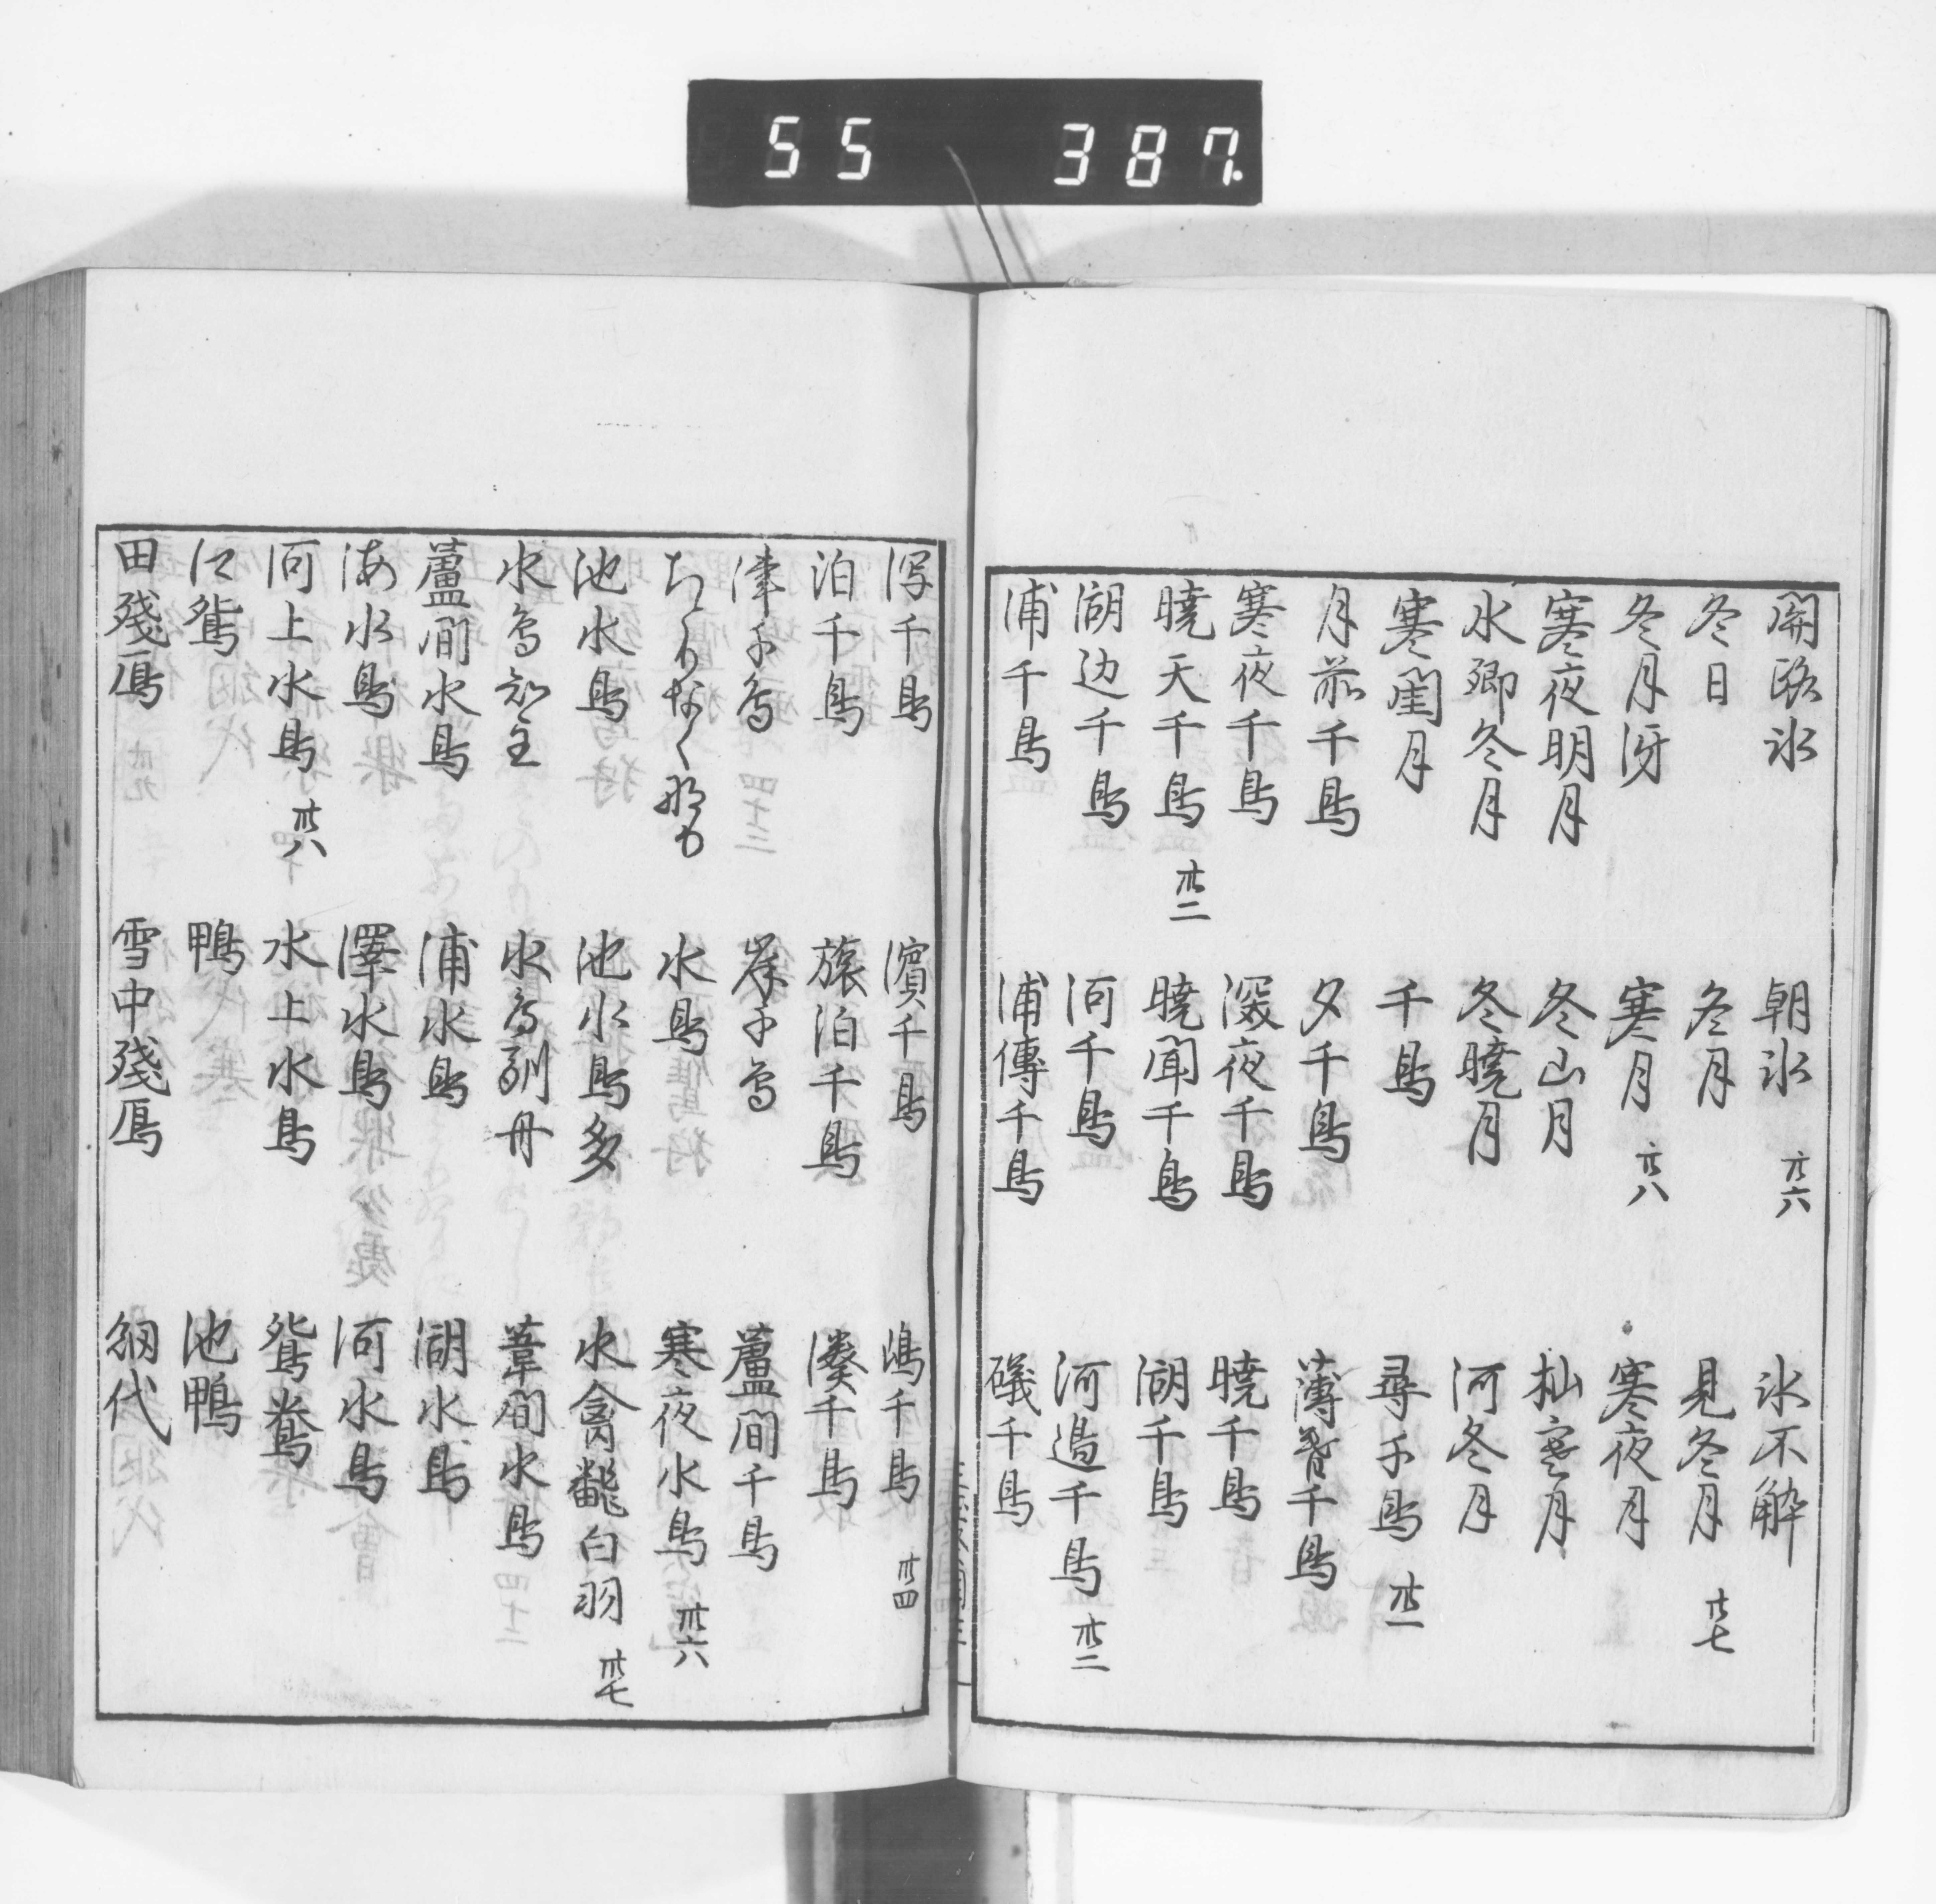 55 387.
閑路氷 朝氷 廿六 氷不解
冬日 冬月 見冬月 廿七
冬月冴 寒月 廿八 寒夜月
寒夜明月 冬山月 杣寒月
水郷冬月 冬暁月 河冬月
寒閨月 千鳥 尋千鳥 卅一
月前千鳥 夕千鳥 薄暮千鳥
寒夜千鳥 深夜千鳥 暁千鳥
暁天千鳥 卅二 暁聞千鳥 湖千鳥
湖辺千鳥 河千鳥 河邊千鳥 卅三
浦千鳥 浦傳千鳥 礒千鳥
濱千鳥 嶋千鳥 卅四
泊千鳥 旅泊千鳥 湊千鳥
津千鳥 岸千鳥 蘆間千鳥
水鳥 寒夜水鳥 卅六
池水鳥 池水鳥多 水禽翻白羽 卅七
水鳥知主 水鳥馴舟 葦間水鳥
蘆間水鳥 浦水鳥 湖水鳥
海水鳥 澤水鳥 河水鳥
河上水鳥 卅八 水上水鳥 鴛鴦
江鴛 鴨 池鴨
田殘鴈 雪中殘鴈 網代